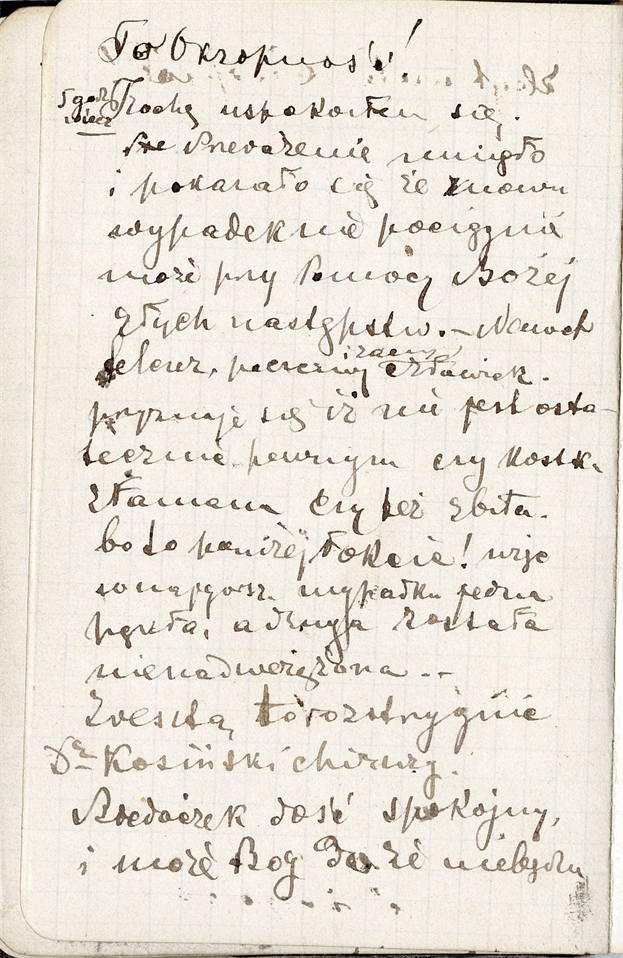 To Okropność!
5 godz
wiecz
Trochę uspokoiłem się.
Przerażenie minęło
i pokazało się że znowu
wypadek nie pociągnie
może przy Pomocy Bożej
złych następstw. – Nawet
felczer, poczciwy i zacny Żdawiek.
przyznaje się iż nie jest osta-
tecznie pewnym czy kostka
złamana czy też zbita.
bo to poniżej łokcia! więc
w najgorsz. wypadku jedna
pękła, a druga została
nienadwerężona --
Zresztą, to rozstrzygnie
Dr Kosiński chirurg.
Biedaczek dość spokojny,
i może Bóg da że nie będzie